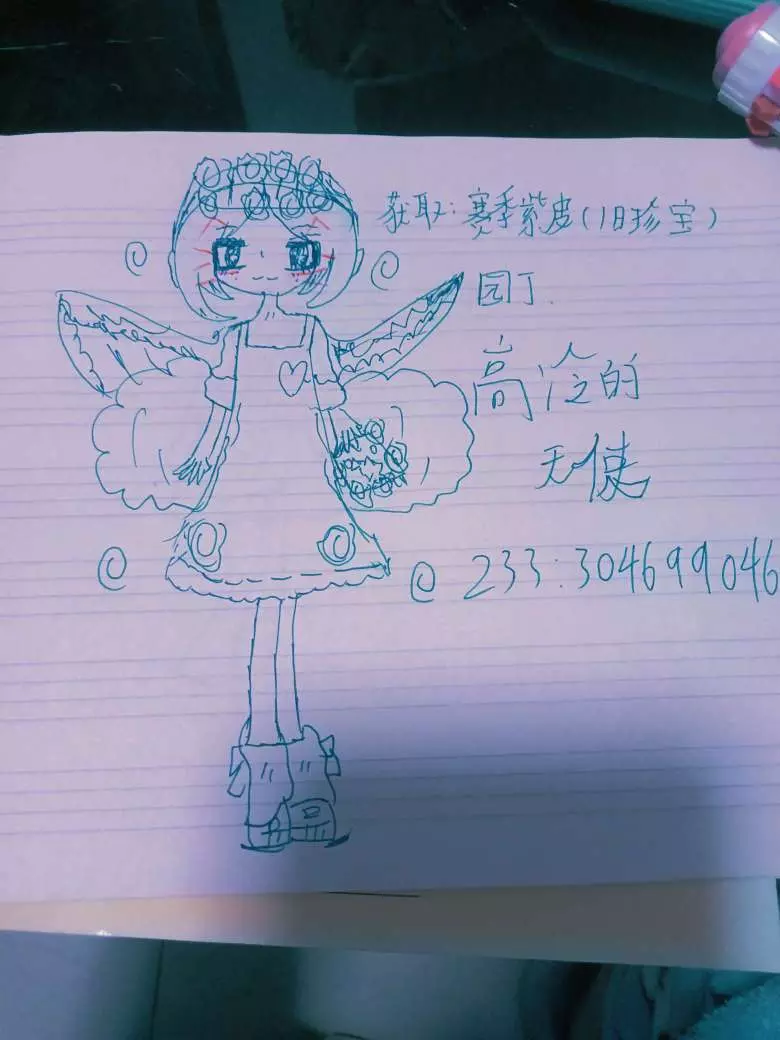 获取:赛季紫皮(旧珍宝)
园丁.
高冷的
天使
@ 233:304699046